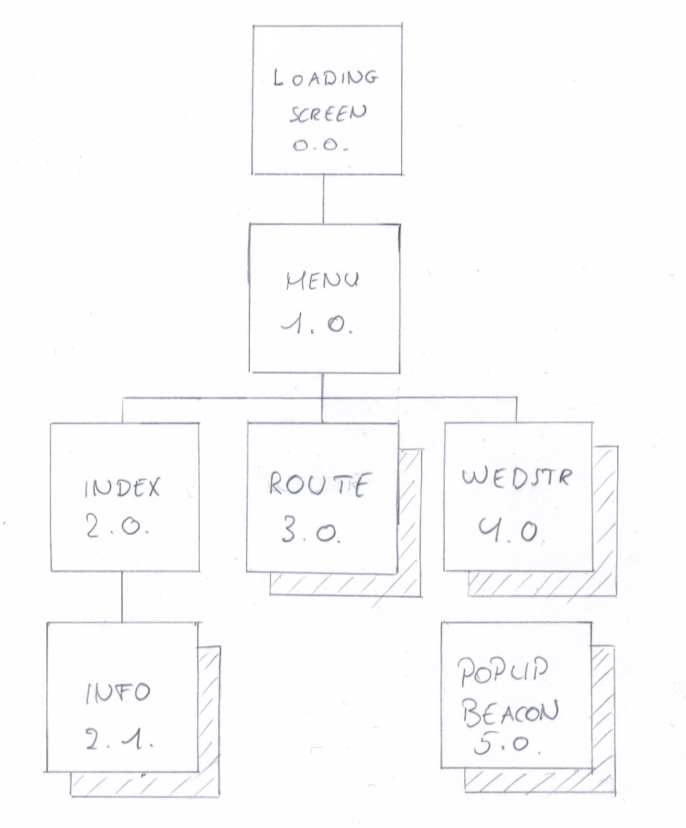 LOADING
SCREEN
0.0.
MENU
1.0.
INDEX
2.0.
ROUTE
3.0.
WEDSTR
4.0.
INFO
2.1.
POPUP
BEACON
5.0.